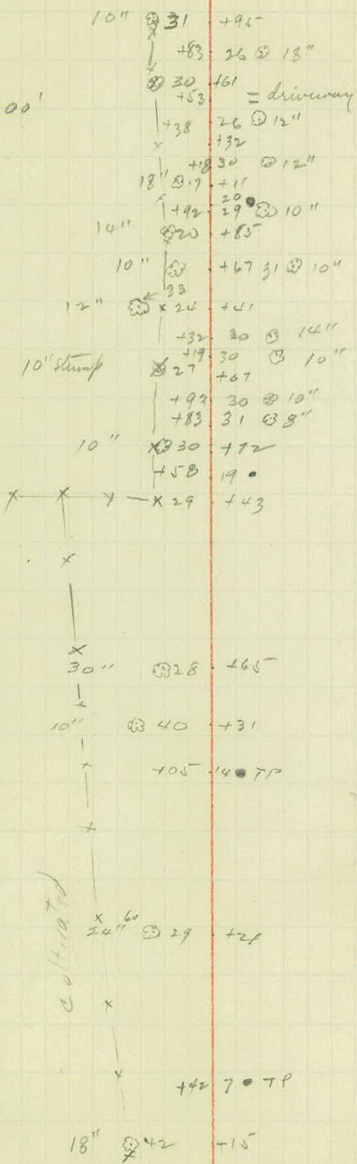 10" 31 +95
+83 26 18"
30 +61
00' +53 = driveway
+38 26 12"
+32
+18 30 12"
18" 17 +11
20
+92 29 10"
14" 20 +85
10" +67 31 10"
33
12" 24 +41
+32 30 14"
+19 30 10"
10" stump 27 +07
+92 30 10"
+83 31 8"
10" 30 +72
+58 19
29 +43
30" 28 +65
10" 40 +31
+05 14 TP
cultivated
24" 29 +21
+42 7 TP
18" 42 +15